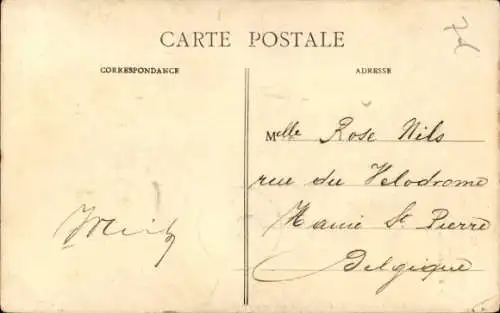 CARTE POSTALE
CORRESPONDANCE
ADRESSE
Melle Rose Nils
rue du Velodrome
Haine St Pierre
Belgique